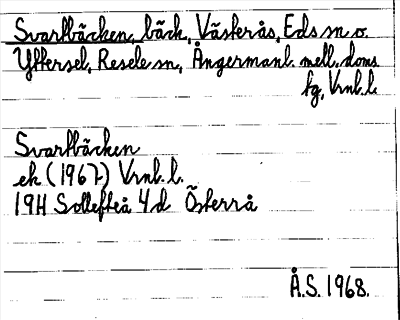 Svartbäcken, bäck, Västerås, Eds sn o.
Yttersel, Resele sn, Ångermanl. mell. doms
fg, Vrnl. l.
Svartbäcken
ek (1967) Vrnl. l.
19H Sollefteå 4d Österrå
Å.S. 1968.